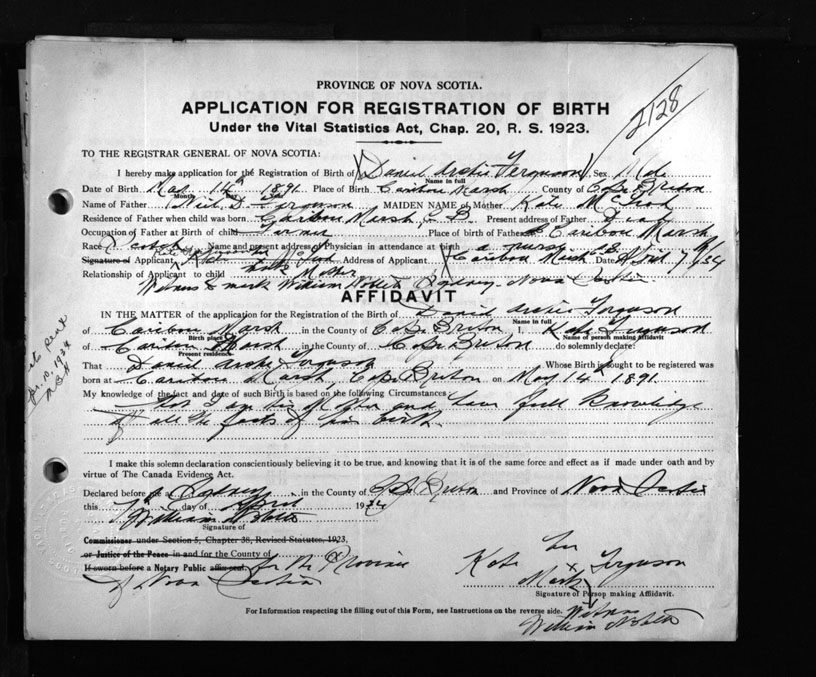 PROVINCE OF NOVA SCOTIA.
APPLICATION FOR REGISTRATION OF BIRTH
2128
Under the Vital Statistics Act, Chap. 20, R. S. 1923.
TO THE REGISTRAR GENERAL OF NOVA SCOTIA:
I hereby make application for the Registration of Birth of Daniel Archie Ferguson Sex Male
Name in full
Date of Birth May 14th 1891 Place of Birth Caribou Marsh County of Cape Breton
Month Day
Name of Father Neil D. Ferguson MAIDEN NAME of Mother Kate McLeod
Residence of Father when child was born Caribou Marsh, C B. Present address of Father Dead
Occupation of Father at Birth of child Farmer Place of birth of Father Caribou Marsh
Race Scotch Name and present address of Physician in attendance at birth a nurse
Signature of Applicant Kate Ferguson Address of Applicant Caribou Marsh C B Date April 7th/34
Relationship of Applicant to child Mother
Witness to mark William Sydney Nova Scotia
AFFIDAVIT
IN THE MATTER of the application for the Registration of the Birth of Daniel Archie Ferguson
Name in full
of Caribou Marsh in the County of Cape Breton I, Kate Ferguson
Birth place Name of person making Affidavit
of Caribou Marsh in the County of Cape Breton do solemnly declare:
Present residence
That Daniel Archie Ferguson Whose Birth is sought to be registered was
born at Caribou Marsh, Cape Breton on May 14th 1891.
My knowledge of the fact and date of such Birth is based on the following Circumstances:
I am his Mother and have full Knowledge
of all the facts of his birth
I make this solemn declaration conscientiously believing it to be true, and knowing that it is of the same force and effect as if made under oath and by
virtue of The Canada Evidence Act.
Declared before me at Sydney in the County of Cape Breton and Province of Nova Scotia
this 7th day of April 1934
William
Signature of
Commissioner under Section 5, Chapter 38, Revised Statutes, 1923,
or Justice of the Peace in and for the County of
If sworn before a Notary Public for the Province
of Nova Scotia
Kate her x Mark Ferguson
Signature of Person making Affidavit.
For Information respecting the filling out of this Form, see Instructions on the reverse side.
Witness
William